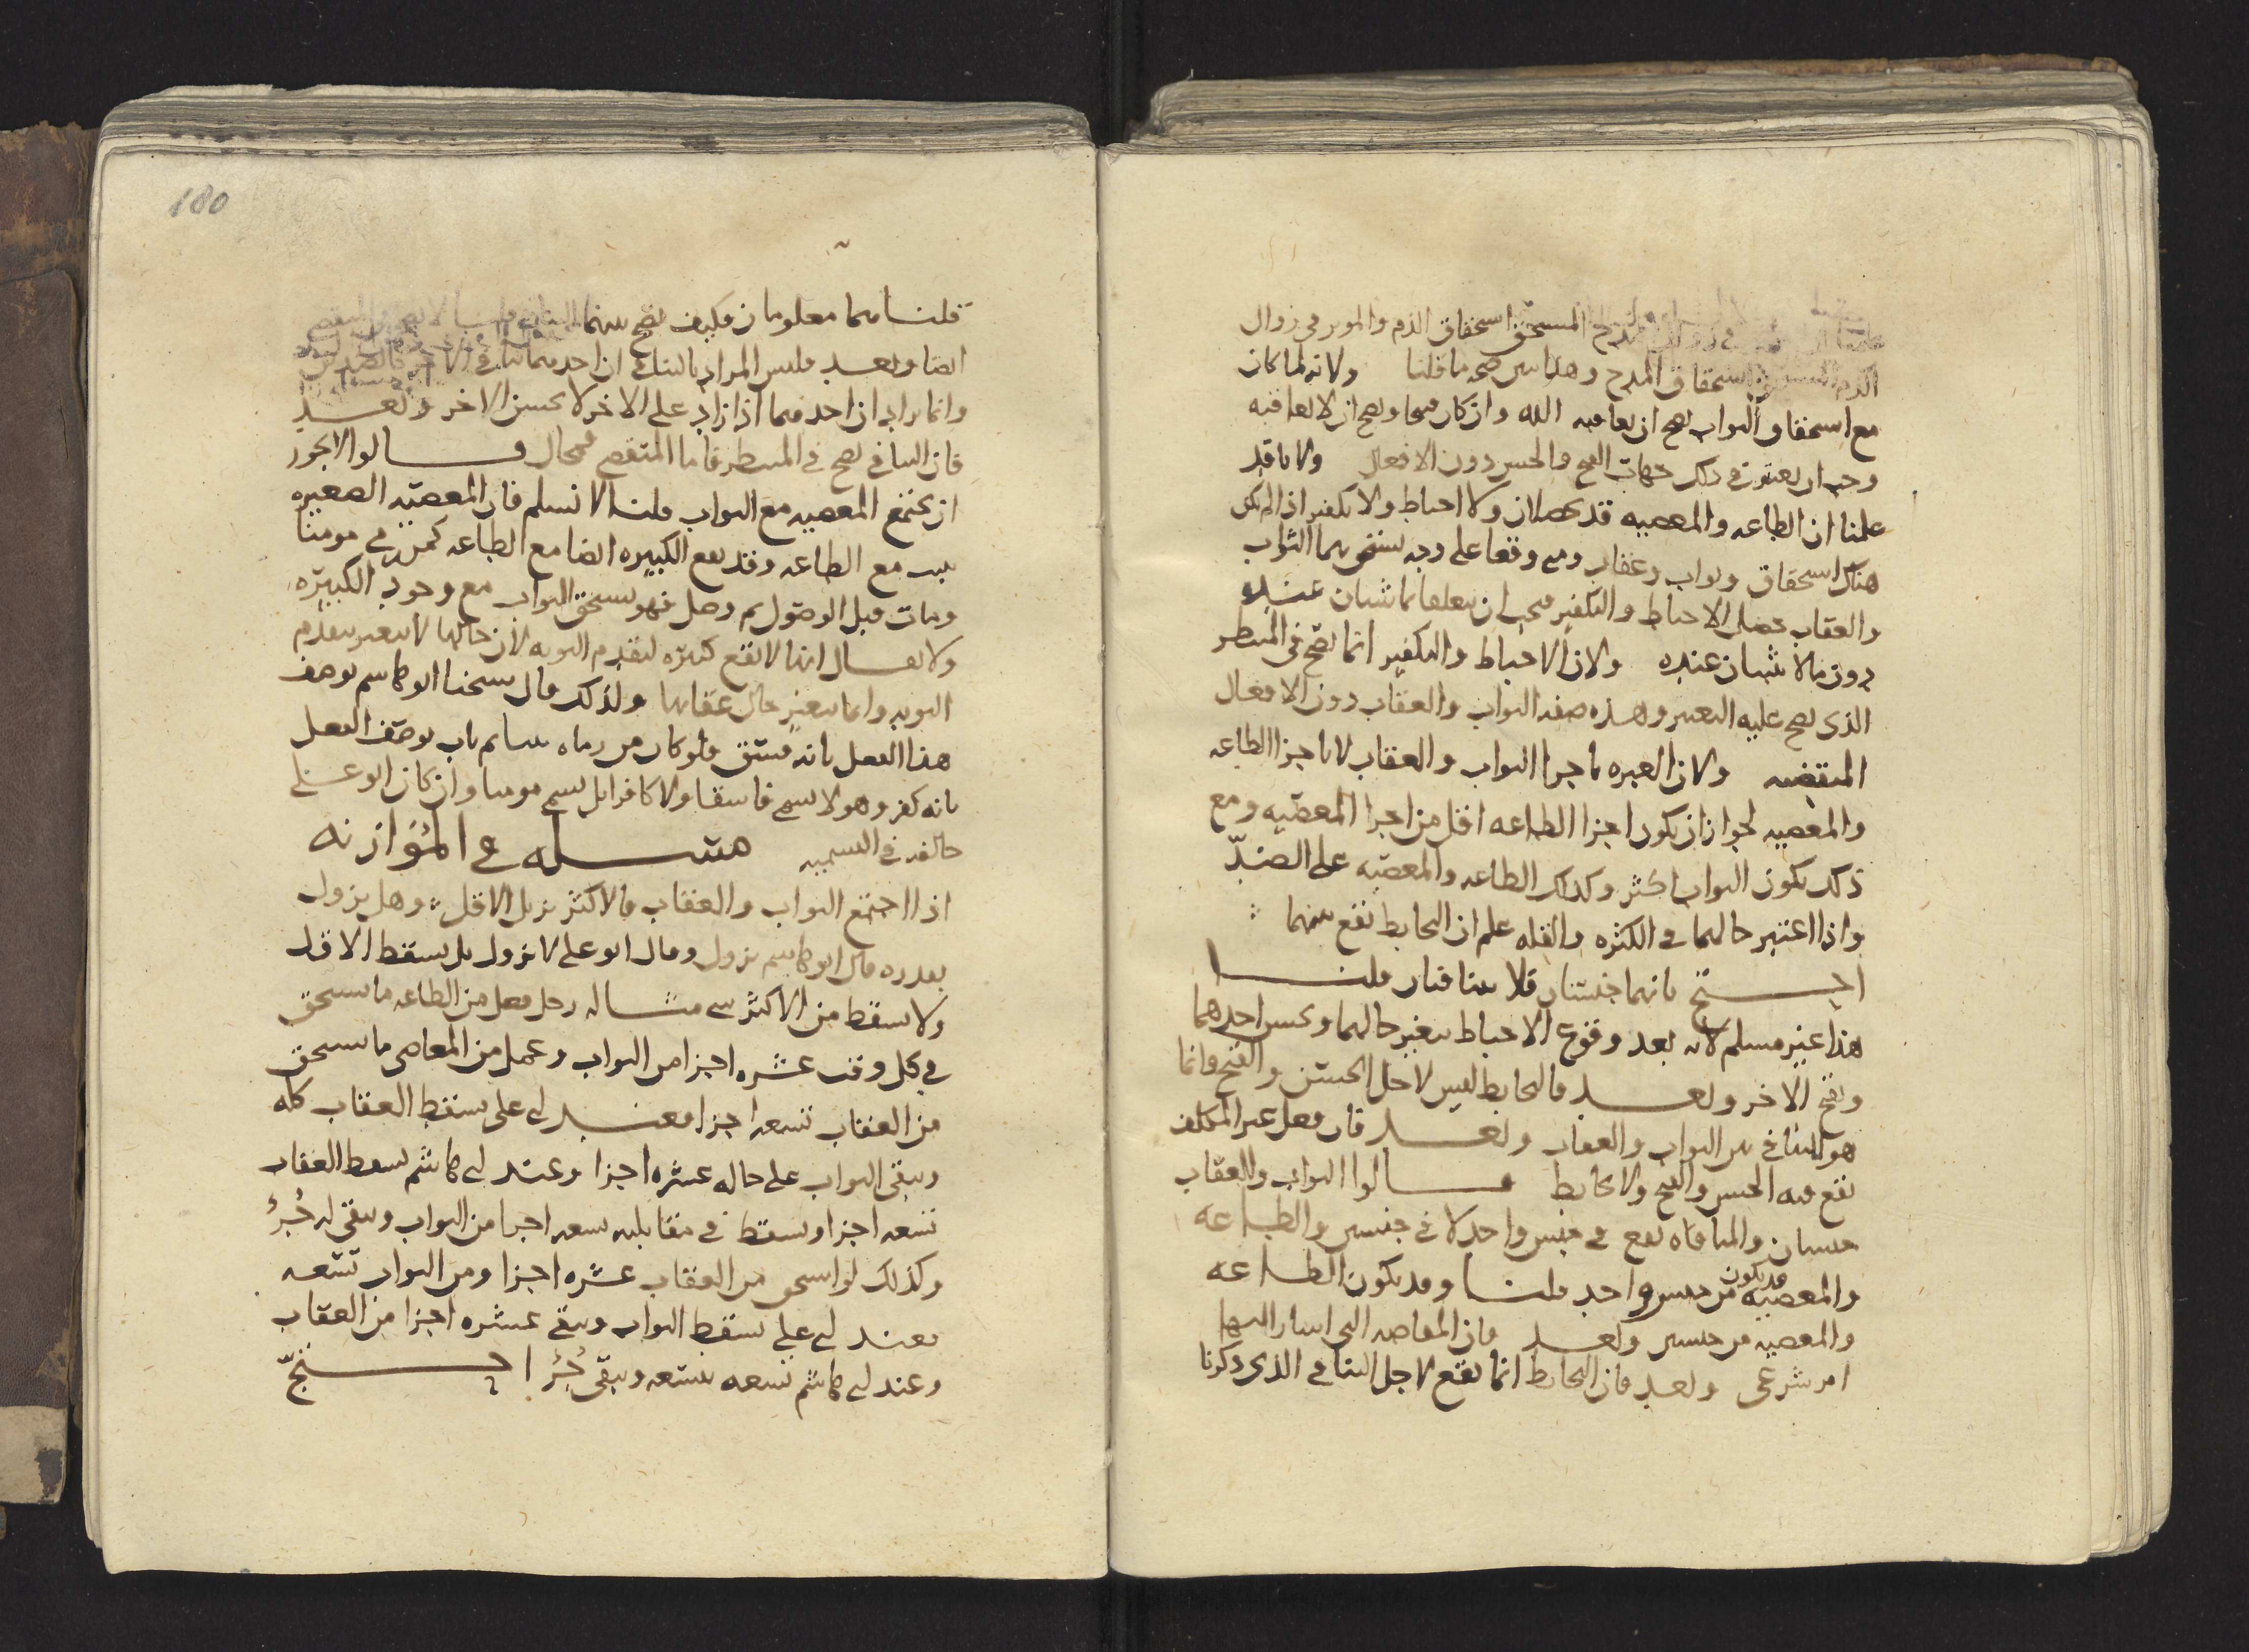 المدح المستحق استحقاق الذم والموثر في زوال
الذم استحقاق المدح وهذا يبين صحه ما قلنا ولانه لما كان
مع استحقاق الثواب يصح ان يعاقبه الله وان كان قبيحا ويصح ان لا يعاقبه
وجب ان يعتبر في ذلك جهات القبح والحسن دون الافعال ولانا قد
علمنا ان الطاعه والمعصيه قد يحصلان ولا احباط ولا تكفير اذا لم يكن
هناك استحقاق ثواب وعقاب ومتى وقعا على وجه يستحق بهما الثواب
والعقاب حصل الاحباط والتكفير فيجب ان يتعلقا بما يثبتان عنده
دون ما لا يثبتان عنده ولان الاحباط والتكفير انما يصح في المنتظر
الذي يصح عليه التغير وهذه صفه الثواب والعقاب دون الافعال
المنقضيه ولان العبره باجزا الثواب والعقاب لا باجزا الطاعه
والمعصيه لجواز ان يكون اجزا الطاعه اقل من اجزا المعصيه ومع
ذلك يكون الثواب اكثر وكذلك الطاعه والمعصيه على الضدّ
واذا اعتبر حالهما في الكثره والقله علم ان التحابط يقع بينهما
احتج بانهما حسنان فلا يتنافيان قلنا
هذا غير مسلم لانه بعد وقوع الاحباط يتغير حالهما ويحسن احدهما
ويقبح الاخر وبعد فالتحابط ليس لاجل الحسن والقبح وانما
هو للتنافي بين الثواب والعقاب وبعد فان فعل غير المكلف
يقع فيه الحسن والقبح ولا تحابط قالوا الثواب والعقاب
جنسان والمنافاه تقع في جنس واحد لا في جنسين والطاعه
والمعصيه قد يكون من جنس واحد قلنا وقد يكون الطاعه
والمعصيه من جنسين وبعد فان المعاصي التي اشار اليها
امر شرعي وبعد فان التحابط انما يقع لاجل التنافي الذي ذكرنا
180
قلنا هما معلومان فكيف يصح بينهما
ايضا وبعد فليس المراد بالتنافي ان احدهما ينافي الاخر كالضدين
وانما يراد ان احدهما اذا زاد على الاخر لا يحسن الاخر وبعد
فان التنافي يصح في المنتظر فاما المتقضي فمحال قالوا لا يجوز
ان يجتمع المعصيه مع الثواب قلنا لا نسلم فان المعصيه الصغيره
يثبت مع الطاعه وقد يقع الكبيره ايضا مع الطاعه كمن رمى مومنا
ومات قبل الوصول ثم وصل فهو يستحق الثواب مع وجود الكبيره
ولا يقال انها لا تقع كبيره لتقدم التوبه لان حالها لا يتغير بتقدم
التوبه وانما يتغير حال عقابها ولذلك قال شيخنا ابو هاشم يوصف
هذا الفعل بانه فسق ولو كان من رماه نبيا ثم تاب يوصف الفعل
بانه كفر وهو لا يسمى فاسقا ولا كافرا بل يسمى مومنا وان كان ابو علي
خالفه في التسميه مسله في الموازنه
اذا اجتمع الثواب والعقاب فالاكثر يزيل الاقل وهل يزول
بقدره قال ابو هاشم يزول وقال ابو علي لا يزول بل يسقط الاقل
ولا يسقط من الاكثر شي مثاله رجل فعل من الطاعه ما يستحق
في كل وقت عشره اجزا من الثواب وعمل من المعاصي ما يستحق
من العقاب تسعه اجزا فعند ابي علي يسقط العقاب كله
ويبقى الثواب على حاله عشره اجزا وعند ابي هاشم يسقط العقاب
تسعه اجزا وسقط في مقابلته تسعه اجزا من الثواب ويبقى له جُزؤ
وكذلك لو استحق من العقاب عشره اجزا ومن الثواب تسعه
فعند ابي علي يسقط الثواب ويبقى عشره اجزا من العقاب
وعند ابي هاشم تسعه بتسعه ويبقى جُزؤ احتجّ